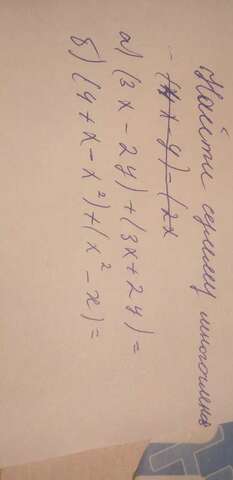 Найти сумму многочлена
а) (3x - 2y) + (3x + 2y) =
б) (4 + x - x²) + (x² - x) =